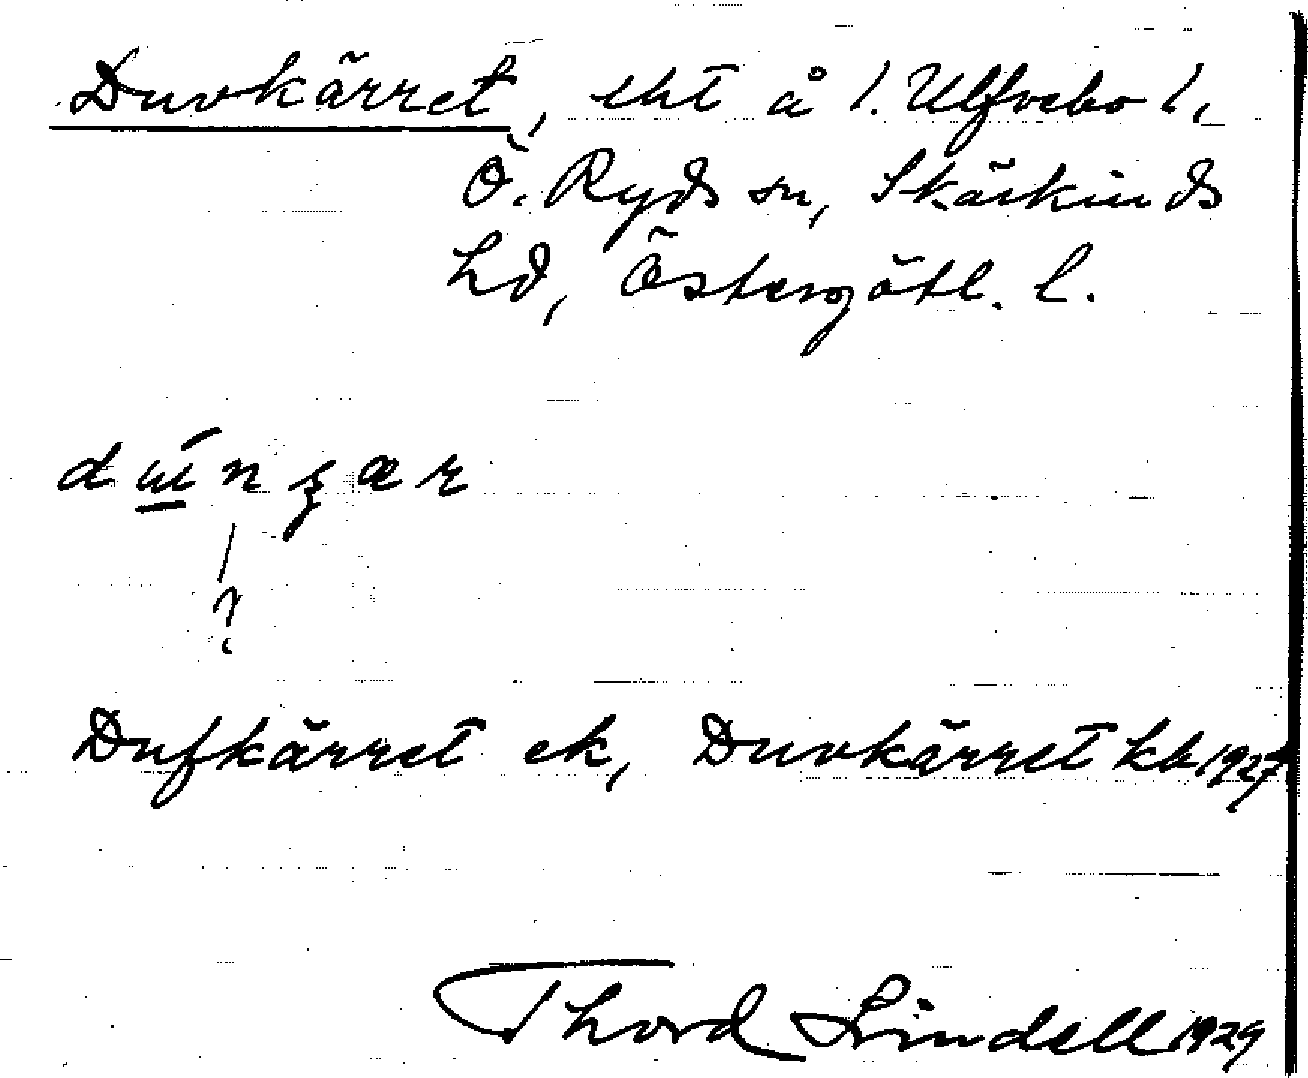 Duvkärret, lht å 1. Ulfvebo 1,
Ö. Ryds sn, Skärkinds
hd, Östergötl. l.
?
Dufkärret ek, Duvkärret kb 1927
Thord Lindell 1929